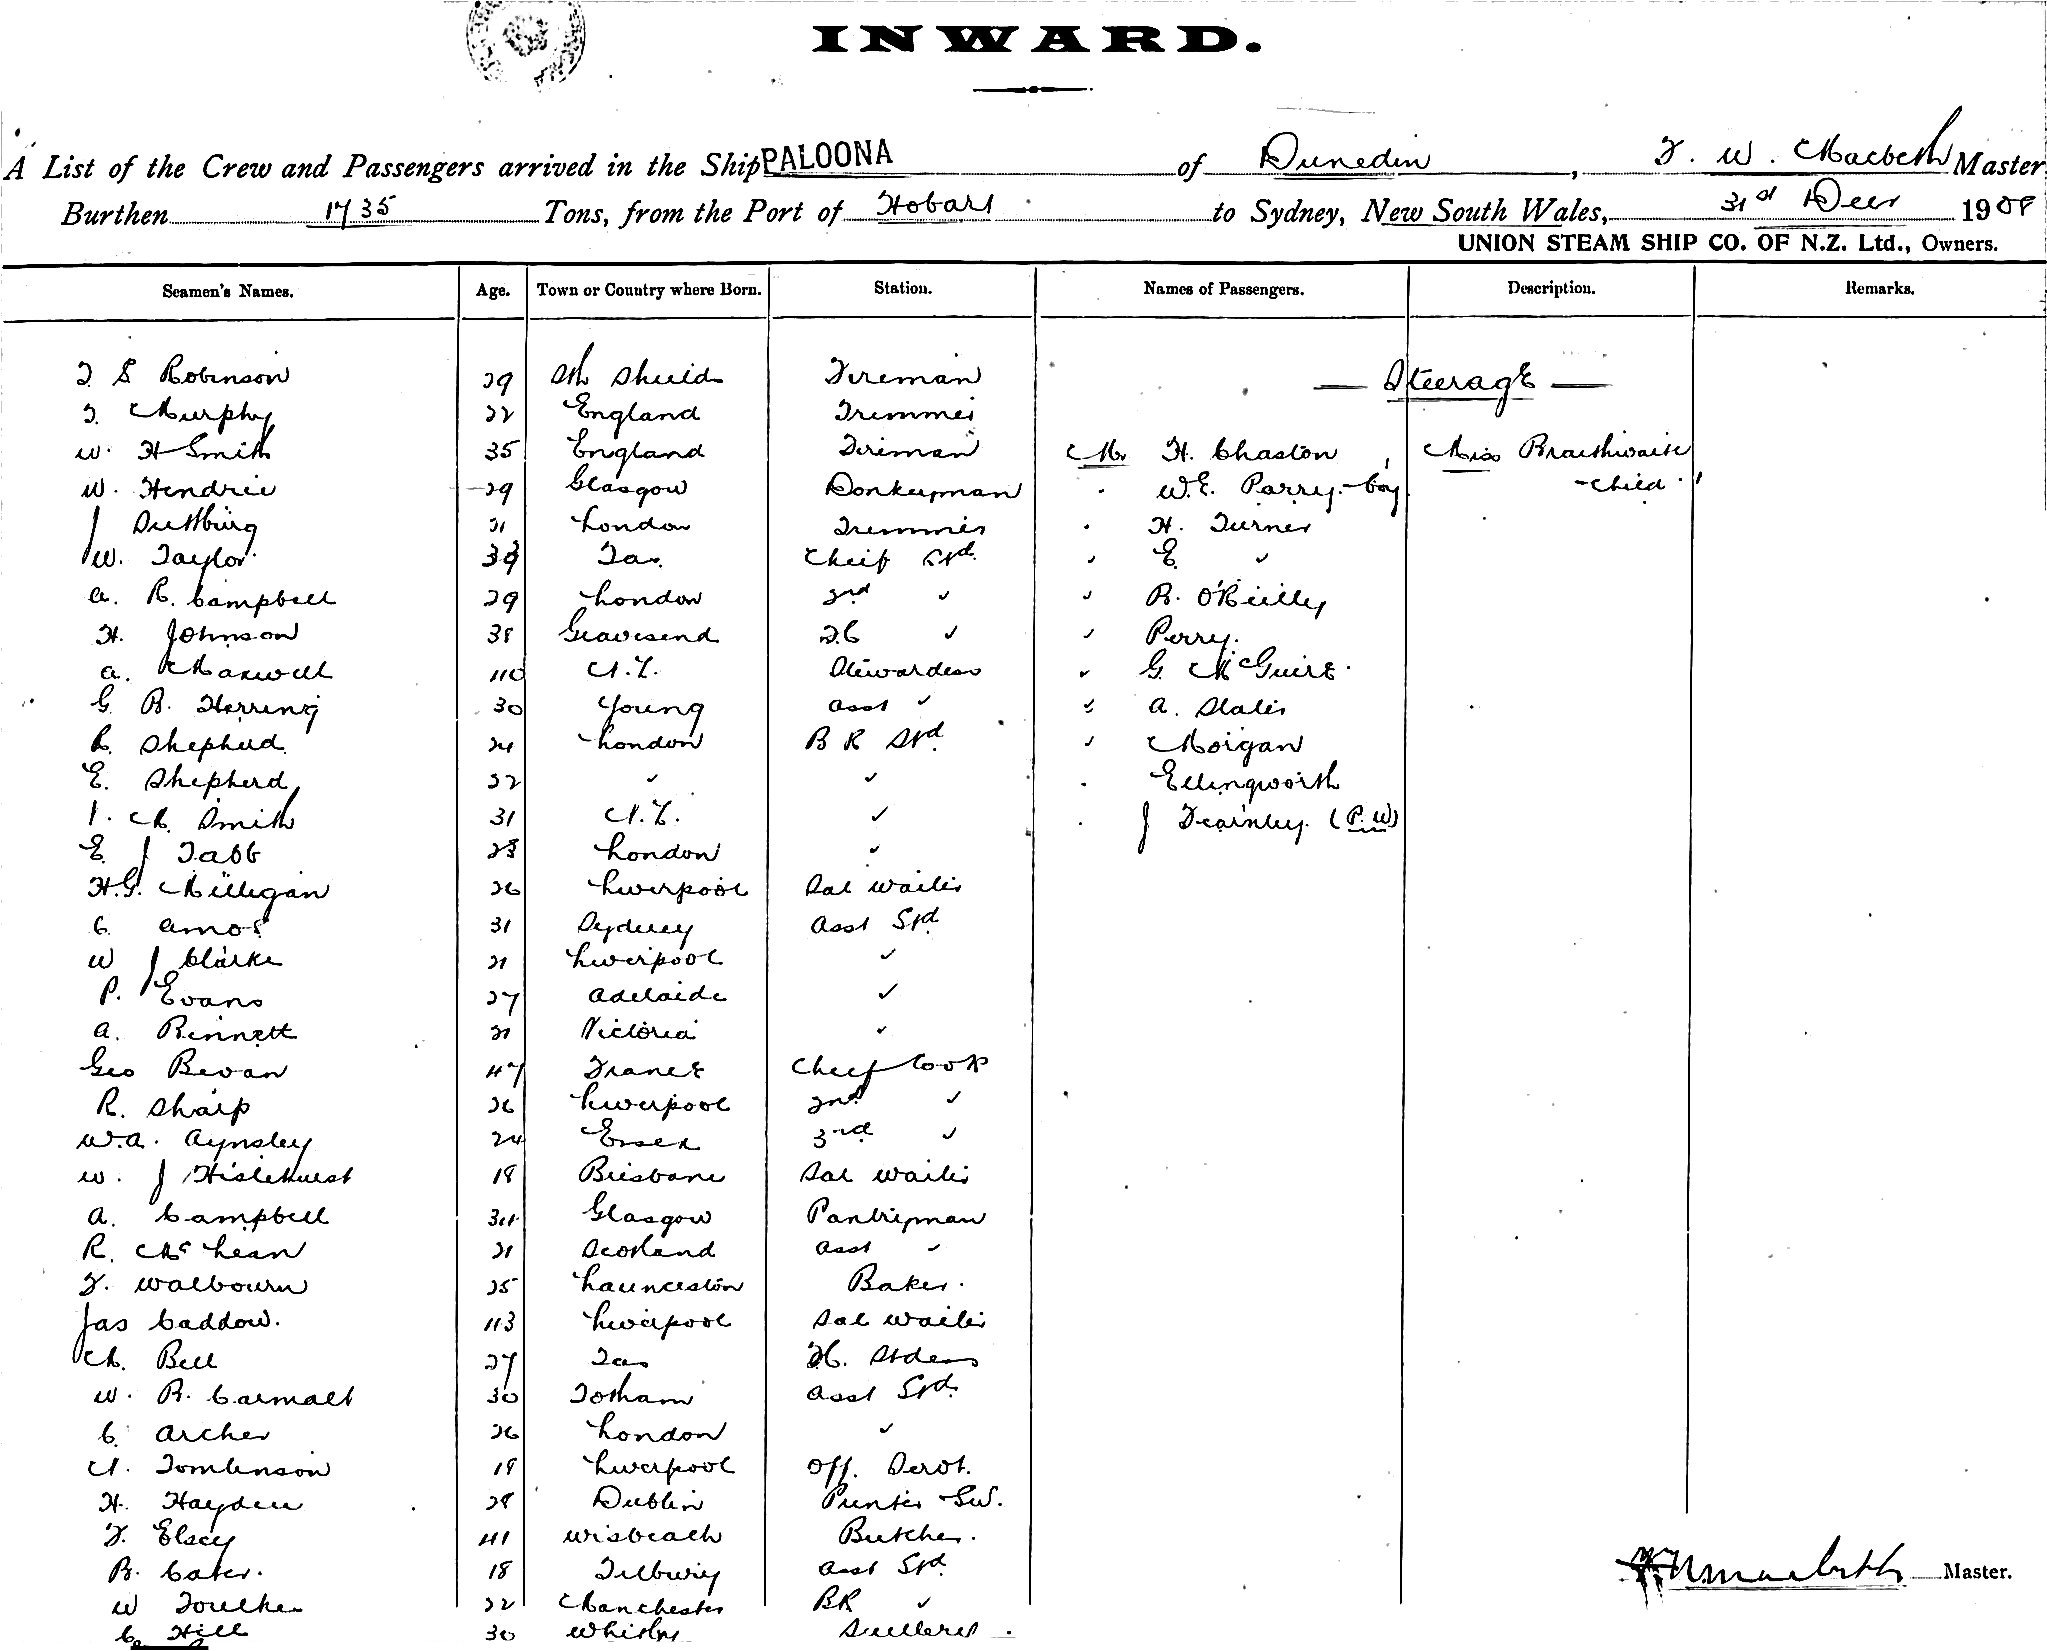 INWARD.
A List of the Crew and Passengers arrived in the Ship PALOONA of Dunedin, F. W. Macbeth Master
Burthen 1735 Tons, from the Port of Hobart to Sydney, New South Wales, 31st Decr 1908
UNION STEAM SHIP CO. OF N.Z. Ltd., Owners.
Seamen's Names. Age. Town or Country where Born. Station. Names of Passengers. Description. Remarks.
J. S Robinson 29 Sth Shield Fireman — Steerage —
J. Murphy 22 England Trimmer
W. H Smith 35 England Fireman Mr H. Chaston Miss Braithwaite
W. Hendrie 29 Glasgow Donkeyman " W.E. Parry - boy - child
J 21 London Trimmer " H. Turner
W. Taylor 39 Tas. Cheif Std. " E. "
A. R. Campbell 29 London 2nd " " R. O'Reilly
H. Johnson 38 Gravesend F.C " " Perry.
A. Maxwell 40 N.Z. Stewardess " G. McGuire.
G. R. Herring 30 Young Asst " " A. Slater
R. Shepherd 24 London B R Std. " Morgan
E. Shepherd 22 " " " Ellingworth
I. M. Smith 31 N.Z. " " J Fearnley. (P.W)
E J Tabb 28 London "
H.G. Milligan 26 Liverpool Sal Waiter
C. Amos 31 Sydney Asst Std
W J Clarke 21 Liverpool "
P. Evans 27 Adelaide "
A. Bennett 21 Victoria "
Geo Bevan 47 France Cheif Cook
R. Sharp 26 Liverpool 2nd "
W.A. Aynsley 24 Essex 3rd "
W. J Hislehurst 18 Brisbane Sal Waiter
A. Campbell 34 Glasgow Pantryman
R. McLean 21 Scotland Asst "
F. Walbourn 25 Launceston Baker.
Jas Caddow. 43 Liverpool Sal Waiter
M. Bell 27 Tas
W. R. Carmalt 30 Totham Asst Std.
C. Archer 26 London "
N. Tomlinson 19 Liverpool Off. Servt.
H. Hayden 28 Dublin Printer
F. Elsey 41 Wisbeach Butcher.
R. Cater. 18 Tilbury Asst Std.
W 22 Manchester BR "
C. Hill 30 Whitby
Master.